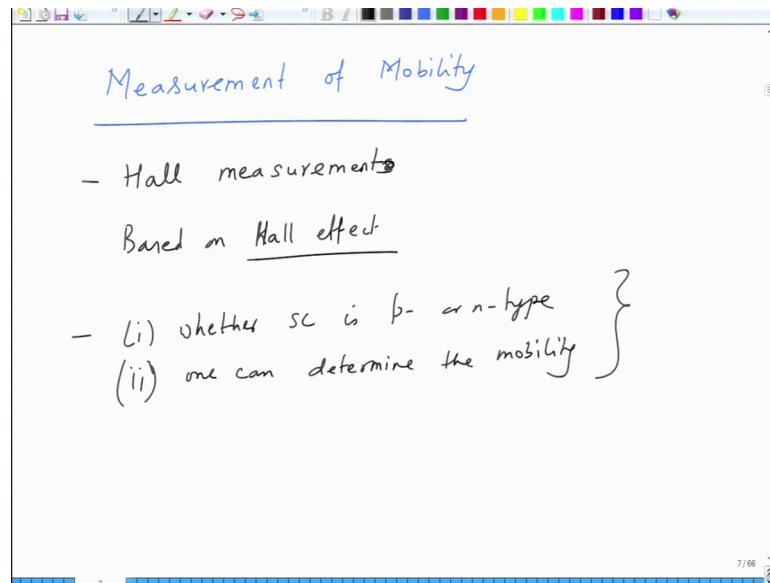 Measurement of Mobility
- Hall measurements
Based on Hall effect
- (i) whether SC is p- or n-type
(ii) one can determine the mobility
7/66